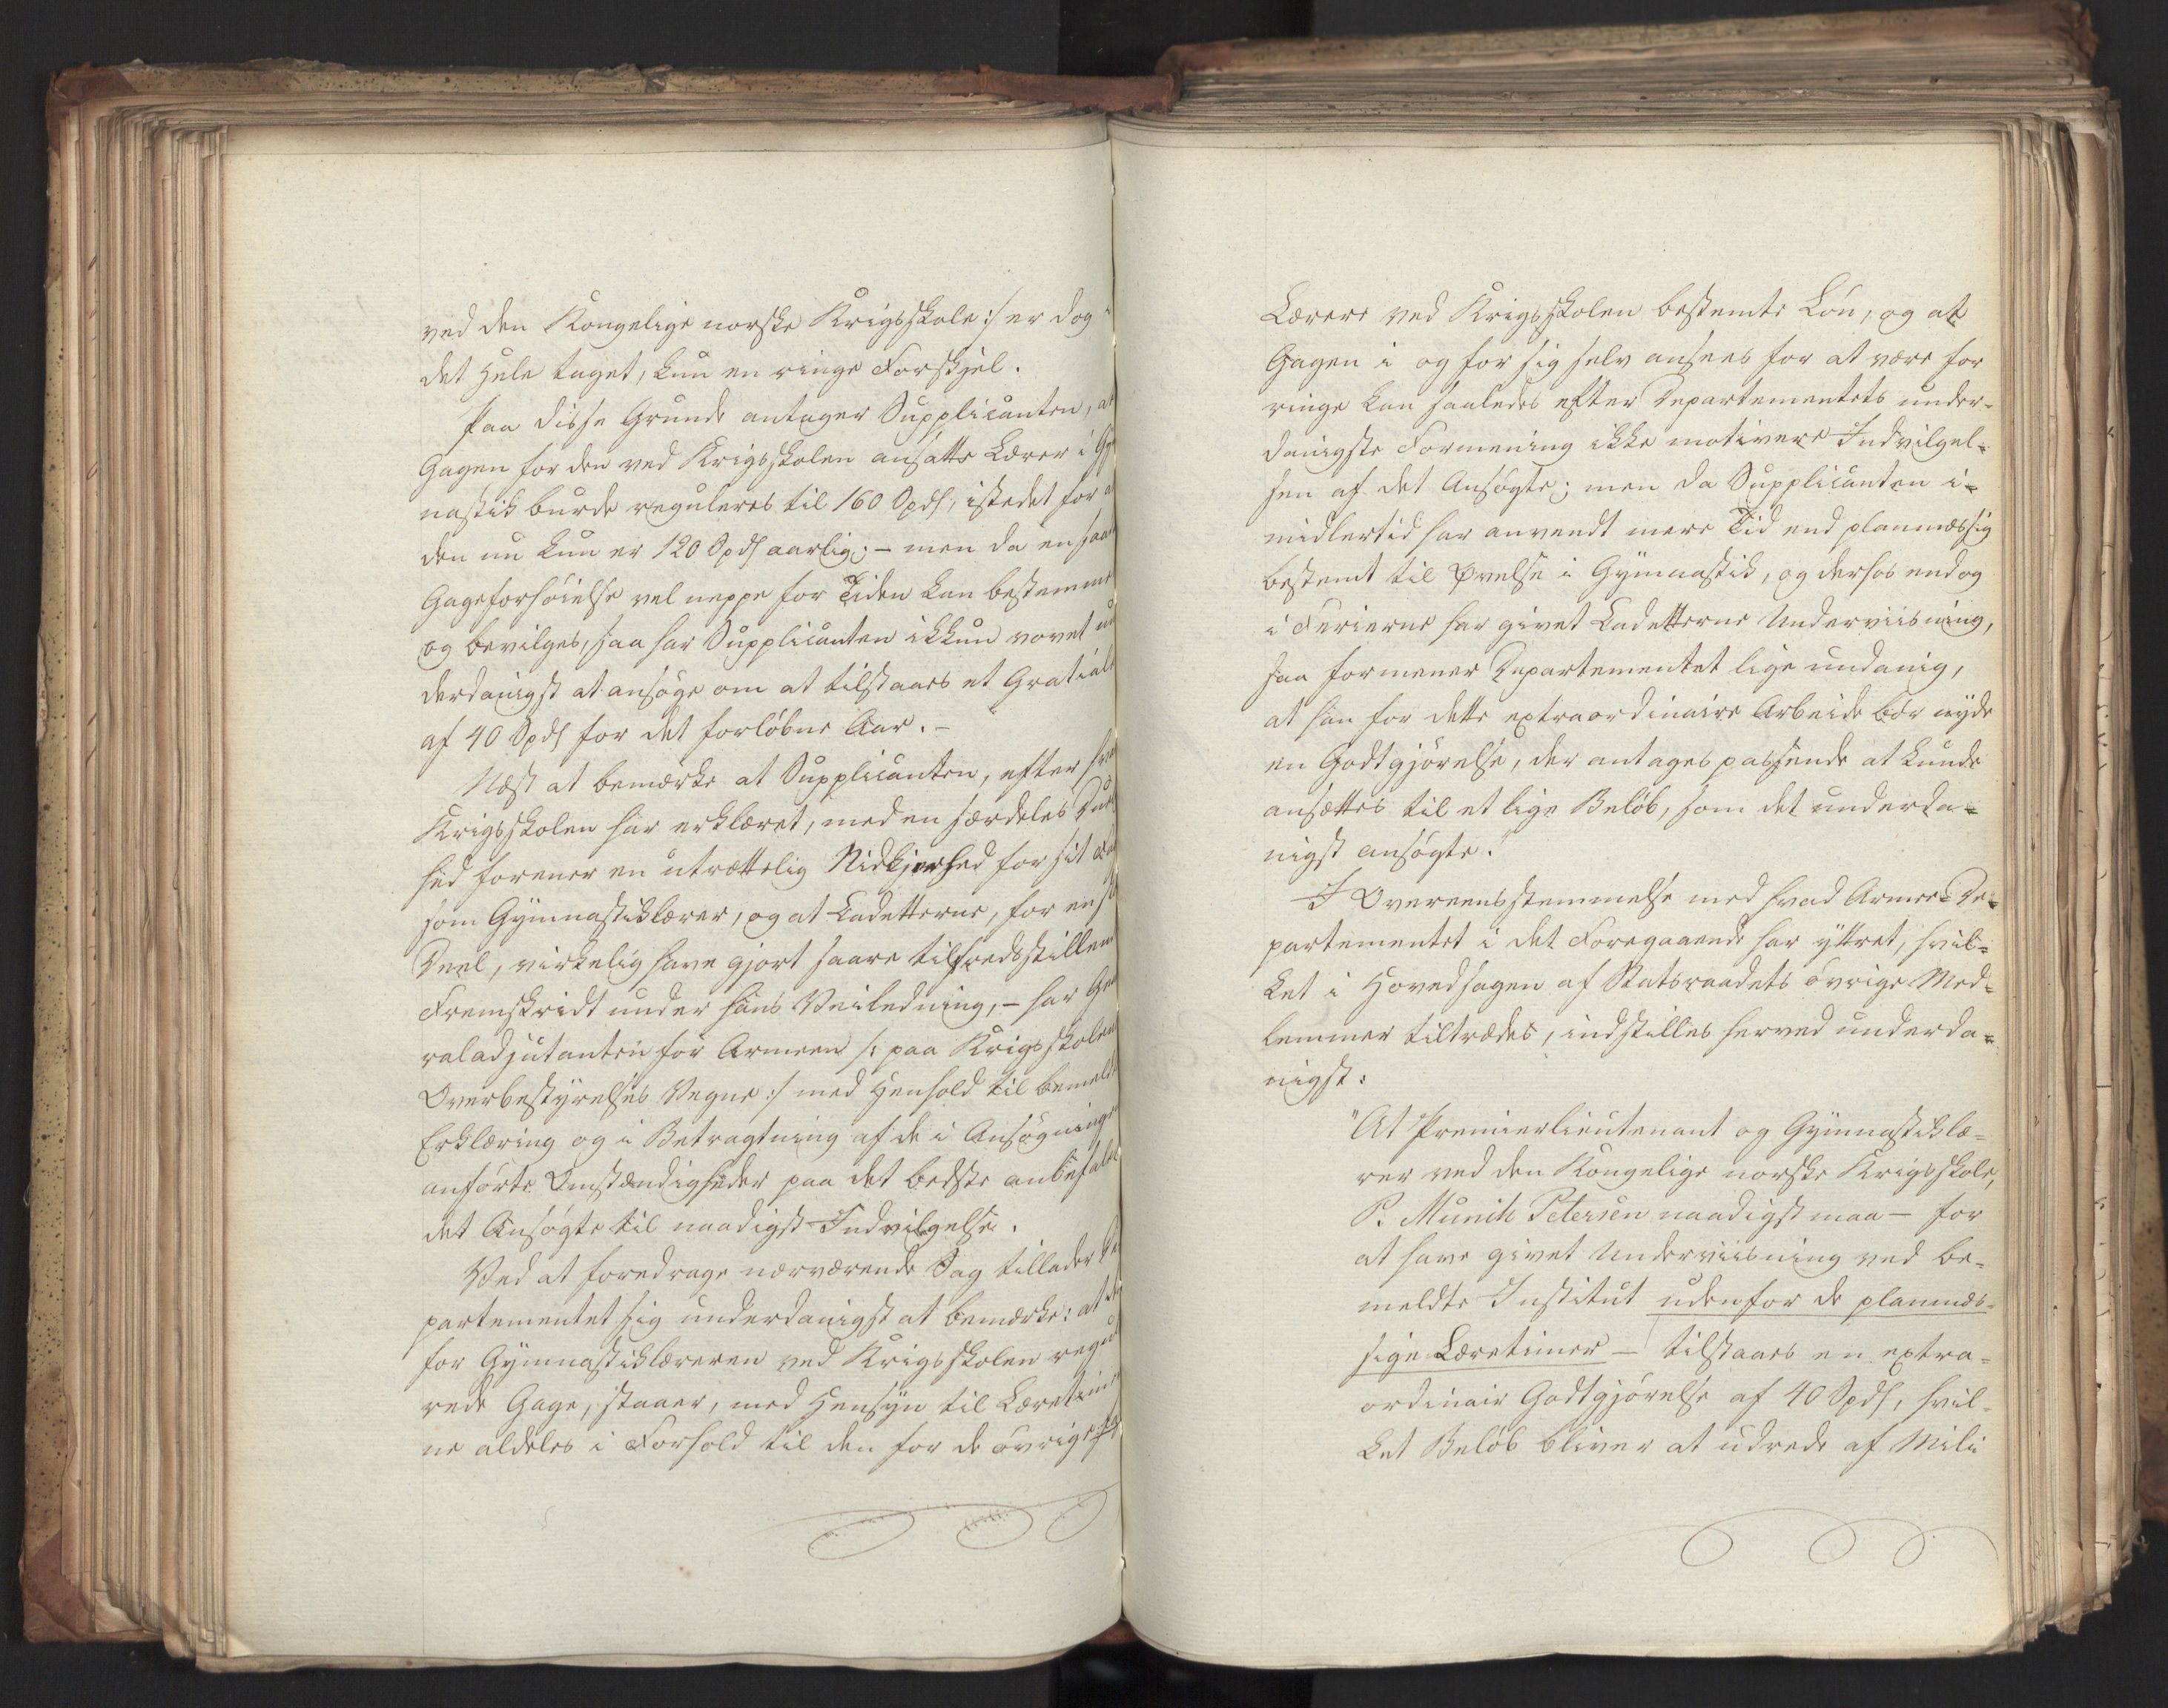 ved den Kongelige norske Krigsskole :/ er dog i
det Hele taget, kun en ringe Forskjel.
Paa disse Grunde antager Supplicanten, at
Gagen for den ved Krigsskolen ansatte Lærer i Gy
nastik burde reguleres til 160 Spd, istedet for a
den nu kun er 120 Spd aarlig; - men da en saa
Gageforhöielse vel neppe for Tiden kan bestemme
og bevilges, saa har Supplicanten ikkun vovet un
derdanigst at ansöge om at tilstaaes et Gratiale
af 40 Spd for det forlöbne Aar. -
Næst at bemærke at Supplicanten, efter hva
Krigsskolen har erklæret, med en særdeles Due
hed forener en utrættelig Nidkjerhed for sit Fa
som Gymnastiklærer, og at Cadetterne, for en st
Deel, virkelig have gjort saare tilfredsstillen
Fremskridt under hans Veiledning, - har Gene
raladjutanten for Armeen /: paa Krigsskolen
Overbestyrelses Vegne :/ med Henhold til bemeldt
Erklæring og i Betragtning af de i Ansögninge
anförte Omstændigheder paa det bedste anbefalet
det Ansögte til naadigst Indvilgelse.
Ved at foredrage nærværende Sag tillader De
partementet sig underdanigst at bemærke: at de
for Gymnastiklæreren ved Krigsskolen regul
rede Gage, staaer, med Hensyn til Læretime
ne aldeles i Forhold til den for de övrige
Lærere ved Krigsskolen bestemte Lön, og at
Gagen i og for sig selv ansees for at være for
ringe kan saaledes efter Departementets under-
danigste Formening ikke motivere Indvilgel-
sen af det Ansögte; men da Supplicanten i-
midlertid har anvendt mere Tid end planmæssig
bestemt til Øvelse i Gymnastik, og derhos endog
i Ferierne har givet Cadetterne Underviisning,
saa formener Departementet lige undanig,
at han for dette extraordinaire Arbeide bör nyde
en Godtgjörelse, der antages passende at kunde
ansættes til et lige Belöb, som det underda-
nigst ansögte."
I Overeensstemmelse med hvad Armee-De-
partementet i det Foregaaende har yttret, hvil-
ket i Hovedsagen af Statsraadets övrige Med-
lemmer tiltrædes, indstilles herved underda-
nigst:
"At Premierlieutenant og Gymnastiklæ-
rer ved den Kongelige norske Krigsskole,
P. Munch Petersen naadigst maa - for
at have givet Underviisning ved be-
meldte Institut udenfor de planmæs-
sige Læretimer - tilstaaes en extra-
ordinair Godtgjörelse af 40 Spd, hvil-
ket Belöb bliver at udrede af Mili